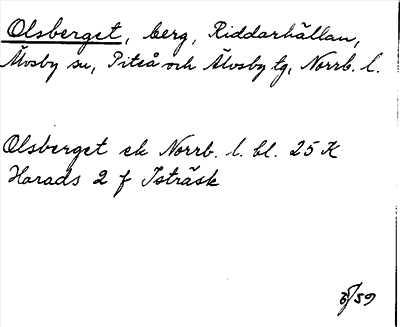 Olsberget, berg, Riddarhällan,
Älvsby sn, Piteå och Älvsby tg, Norrb. l.
Olsberget ek Norrb. l. bl. 25 K
Harads 2 f Isträsk
/59